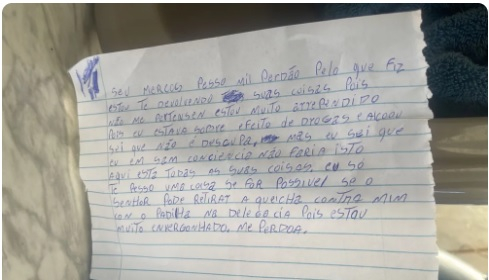 SEU MERCOS PESSO MIL PERDÃO PELO QUE FIZ
ESTOU TE DEVOLVENDO SUAS COISAS POIS
NÃO ME PERTENSEN ESTOU MUITO ARREPENDIDO
POIS EU ESTAVA SOBRE EFEITO DE DROGAS E ALCOOU
SEI QUE NÃO É DESCUPA, MAS EU SEI QUE
EU EM SAM CONCIENCIA NÃO FARIA ISTO
AQUI ESTA TODAS AS SUAS COISAS, EU SÓ
TE PESSO UMA COISA SE FOR POSSIVEL SE O
SENHOR PODE RETIRAR A QUEICHA CONTRA MIM
CON O PADILHA NA DELEGACIA POIS ESTOU
MUITO ENVERGONHADO, ME PERDOA.